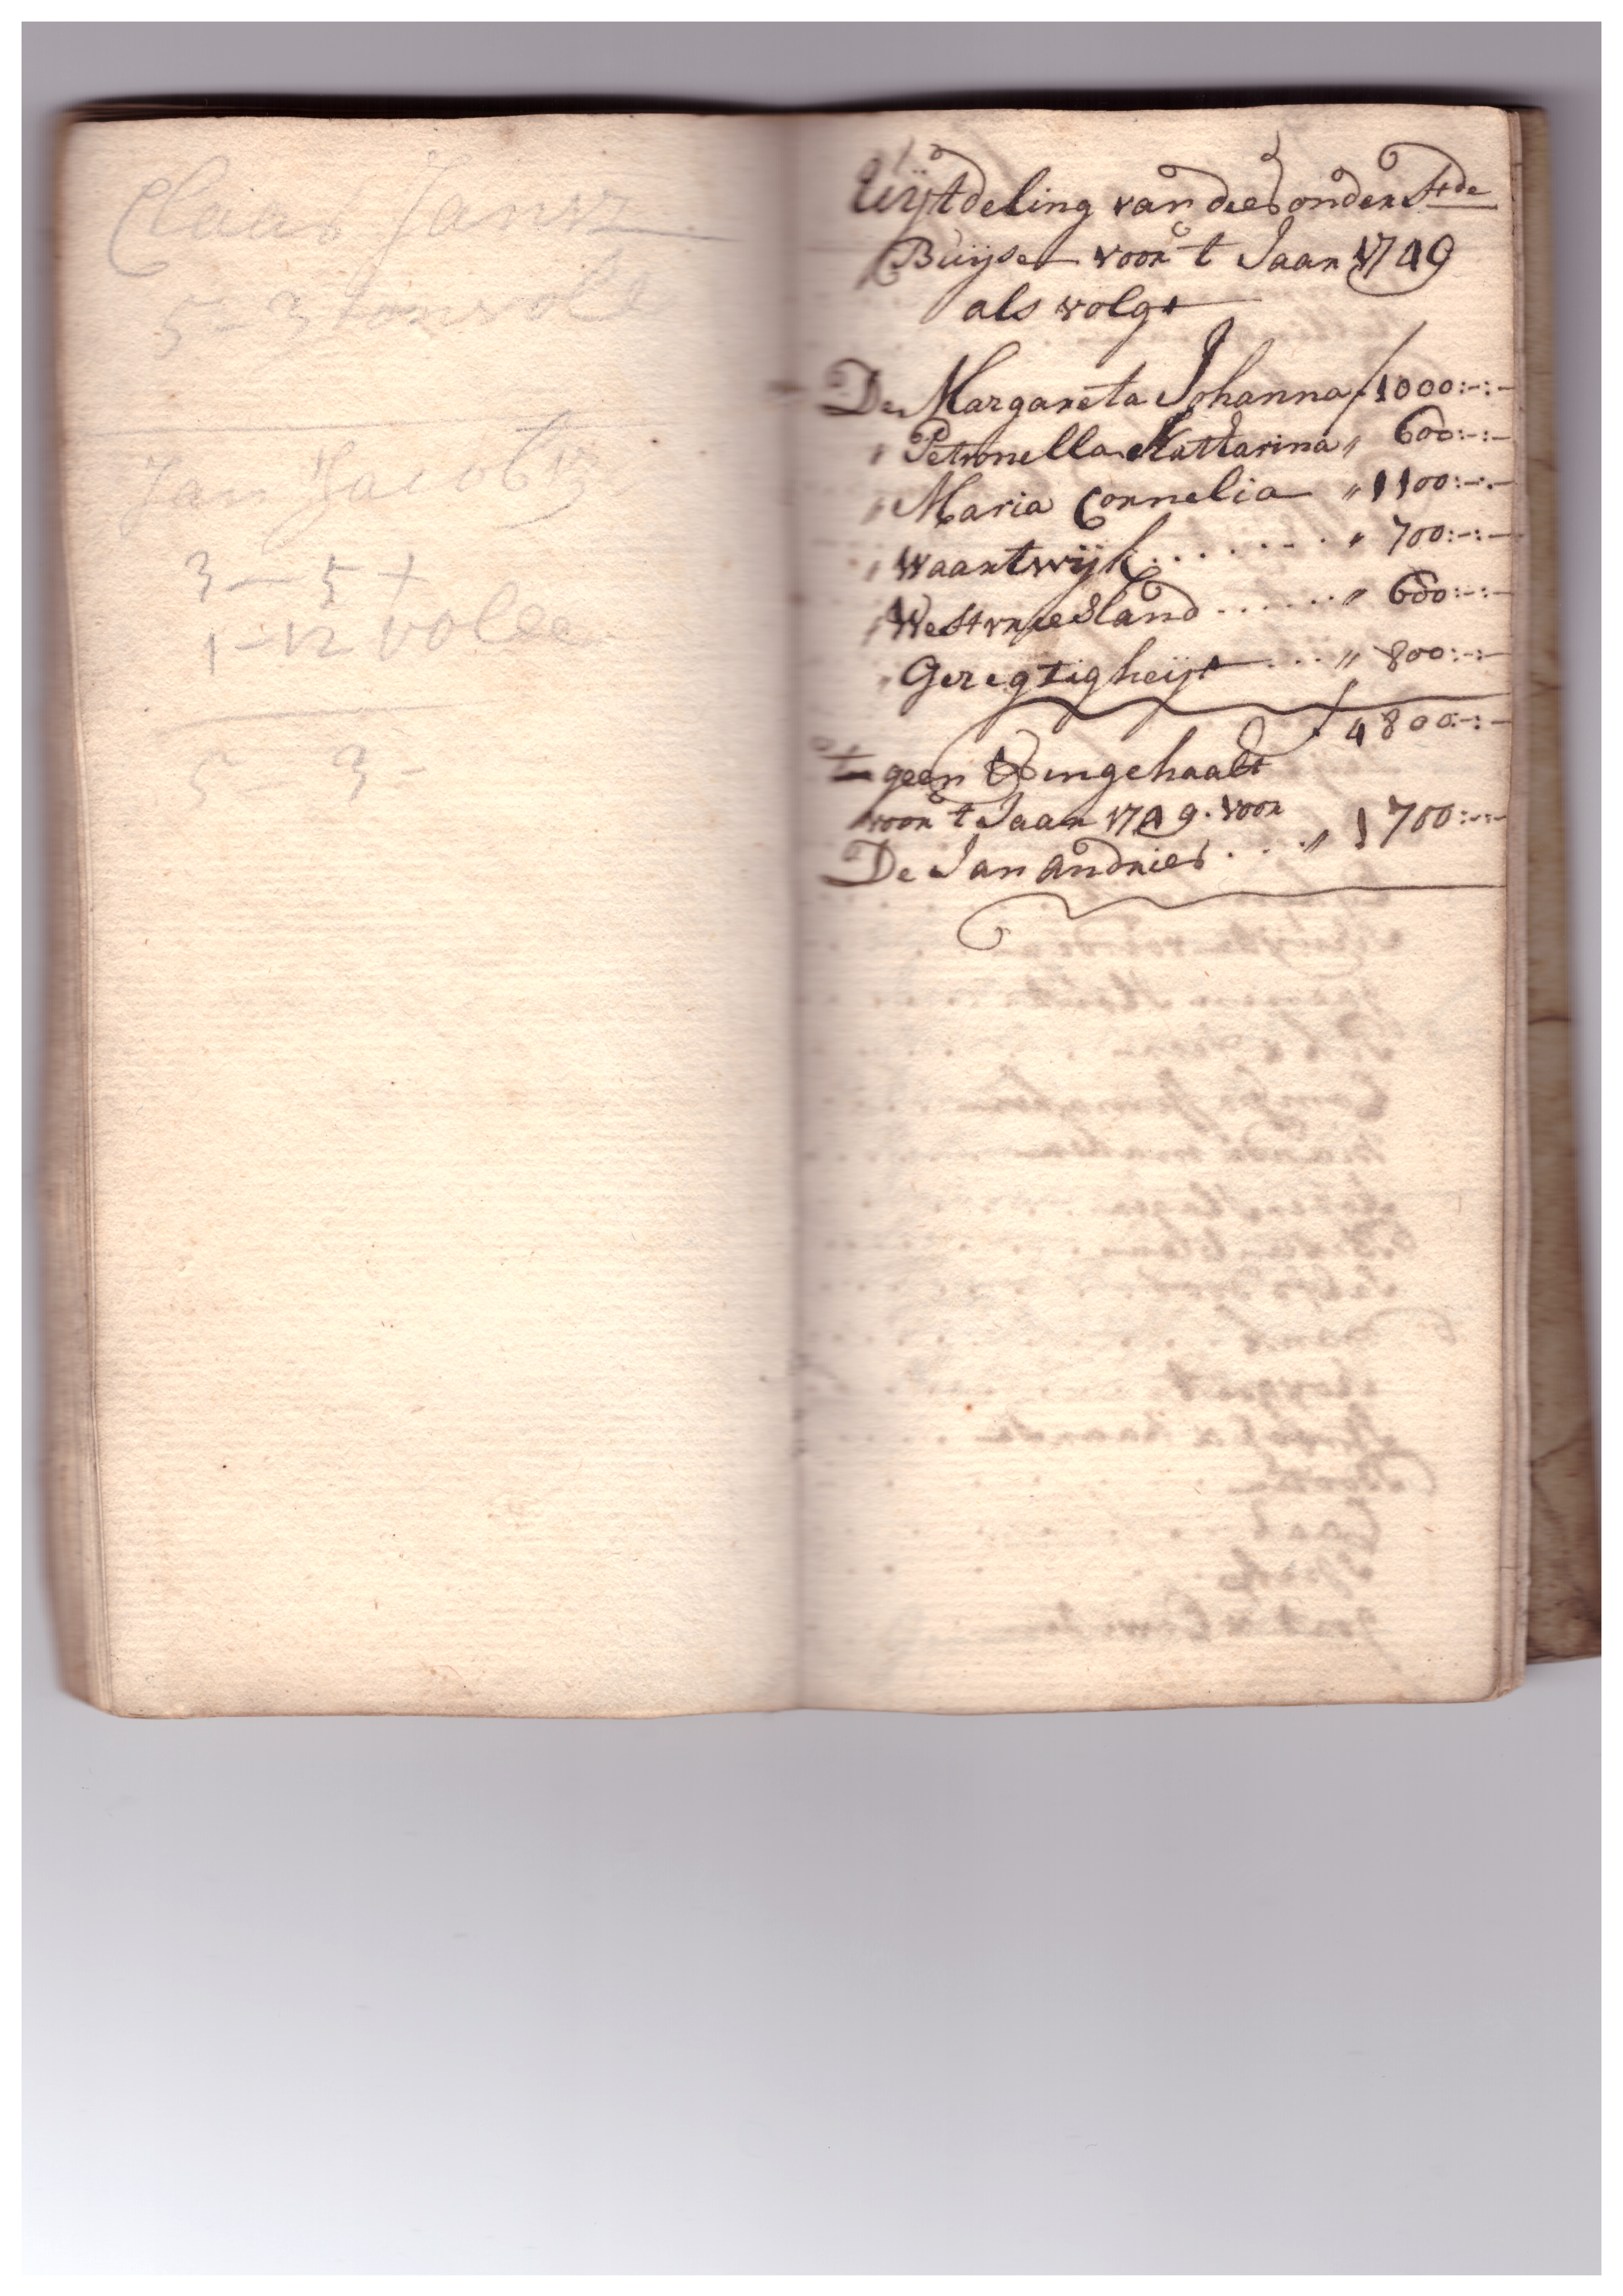 Claas Jansz
5 - 3
Jan Jacobsz
3 - 5 +
1 - 12 volle
5 - 3 -
Uijtdeling van dees onderstde
Buijse voor 't Jaar 1749
als volgt
De Margareta Johanna ƒ 1000:-:-
" Petronella Kattarina " 600:-:-
" Maria Cornelia " 1100:-:-
" Waartwijk . . . . . . . " 700:-:-
" Westvriesland . . . . . . " 600:-:-
" Geregtigheijt . . . " 800:-:-
ƒ 4800:-:-
't geen ingehaalt
voor 't Jaar 1749. voor
De Jan andries . . . " 1700:-:-